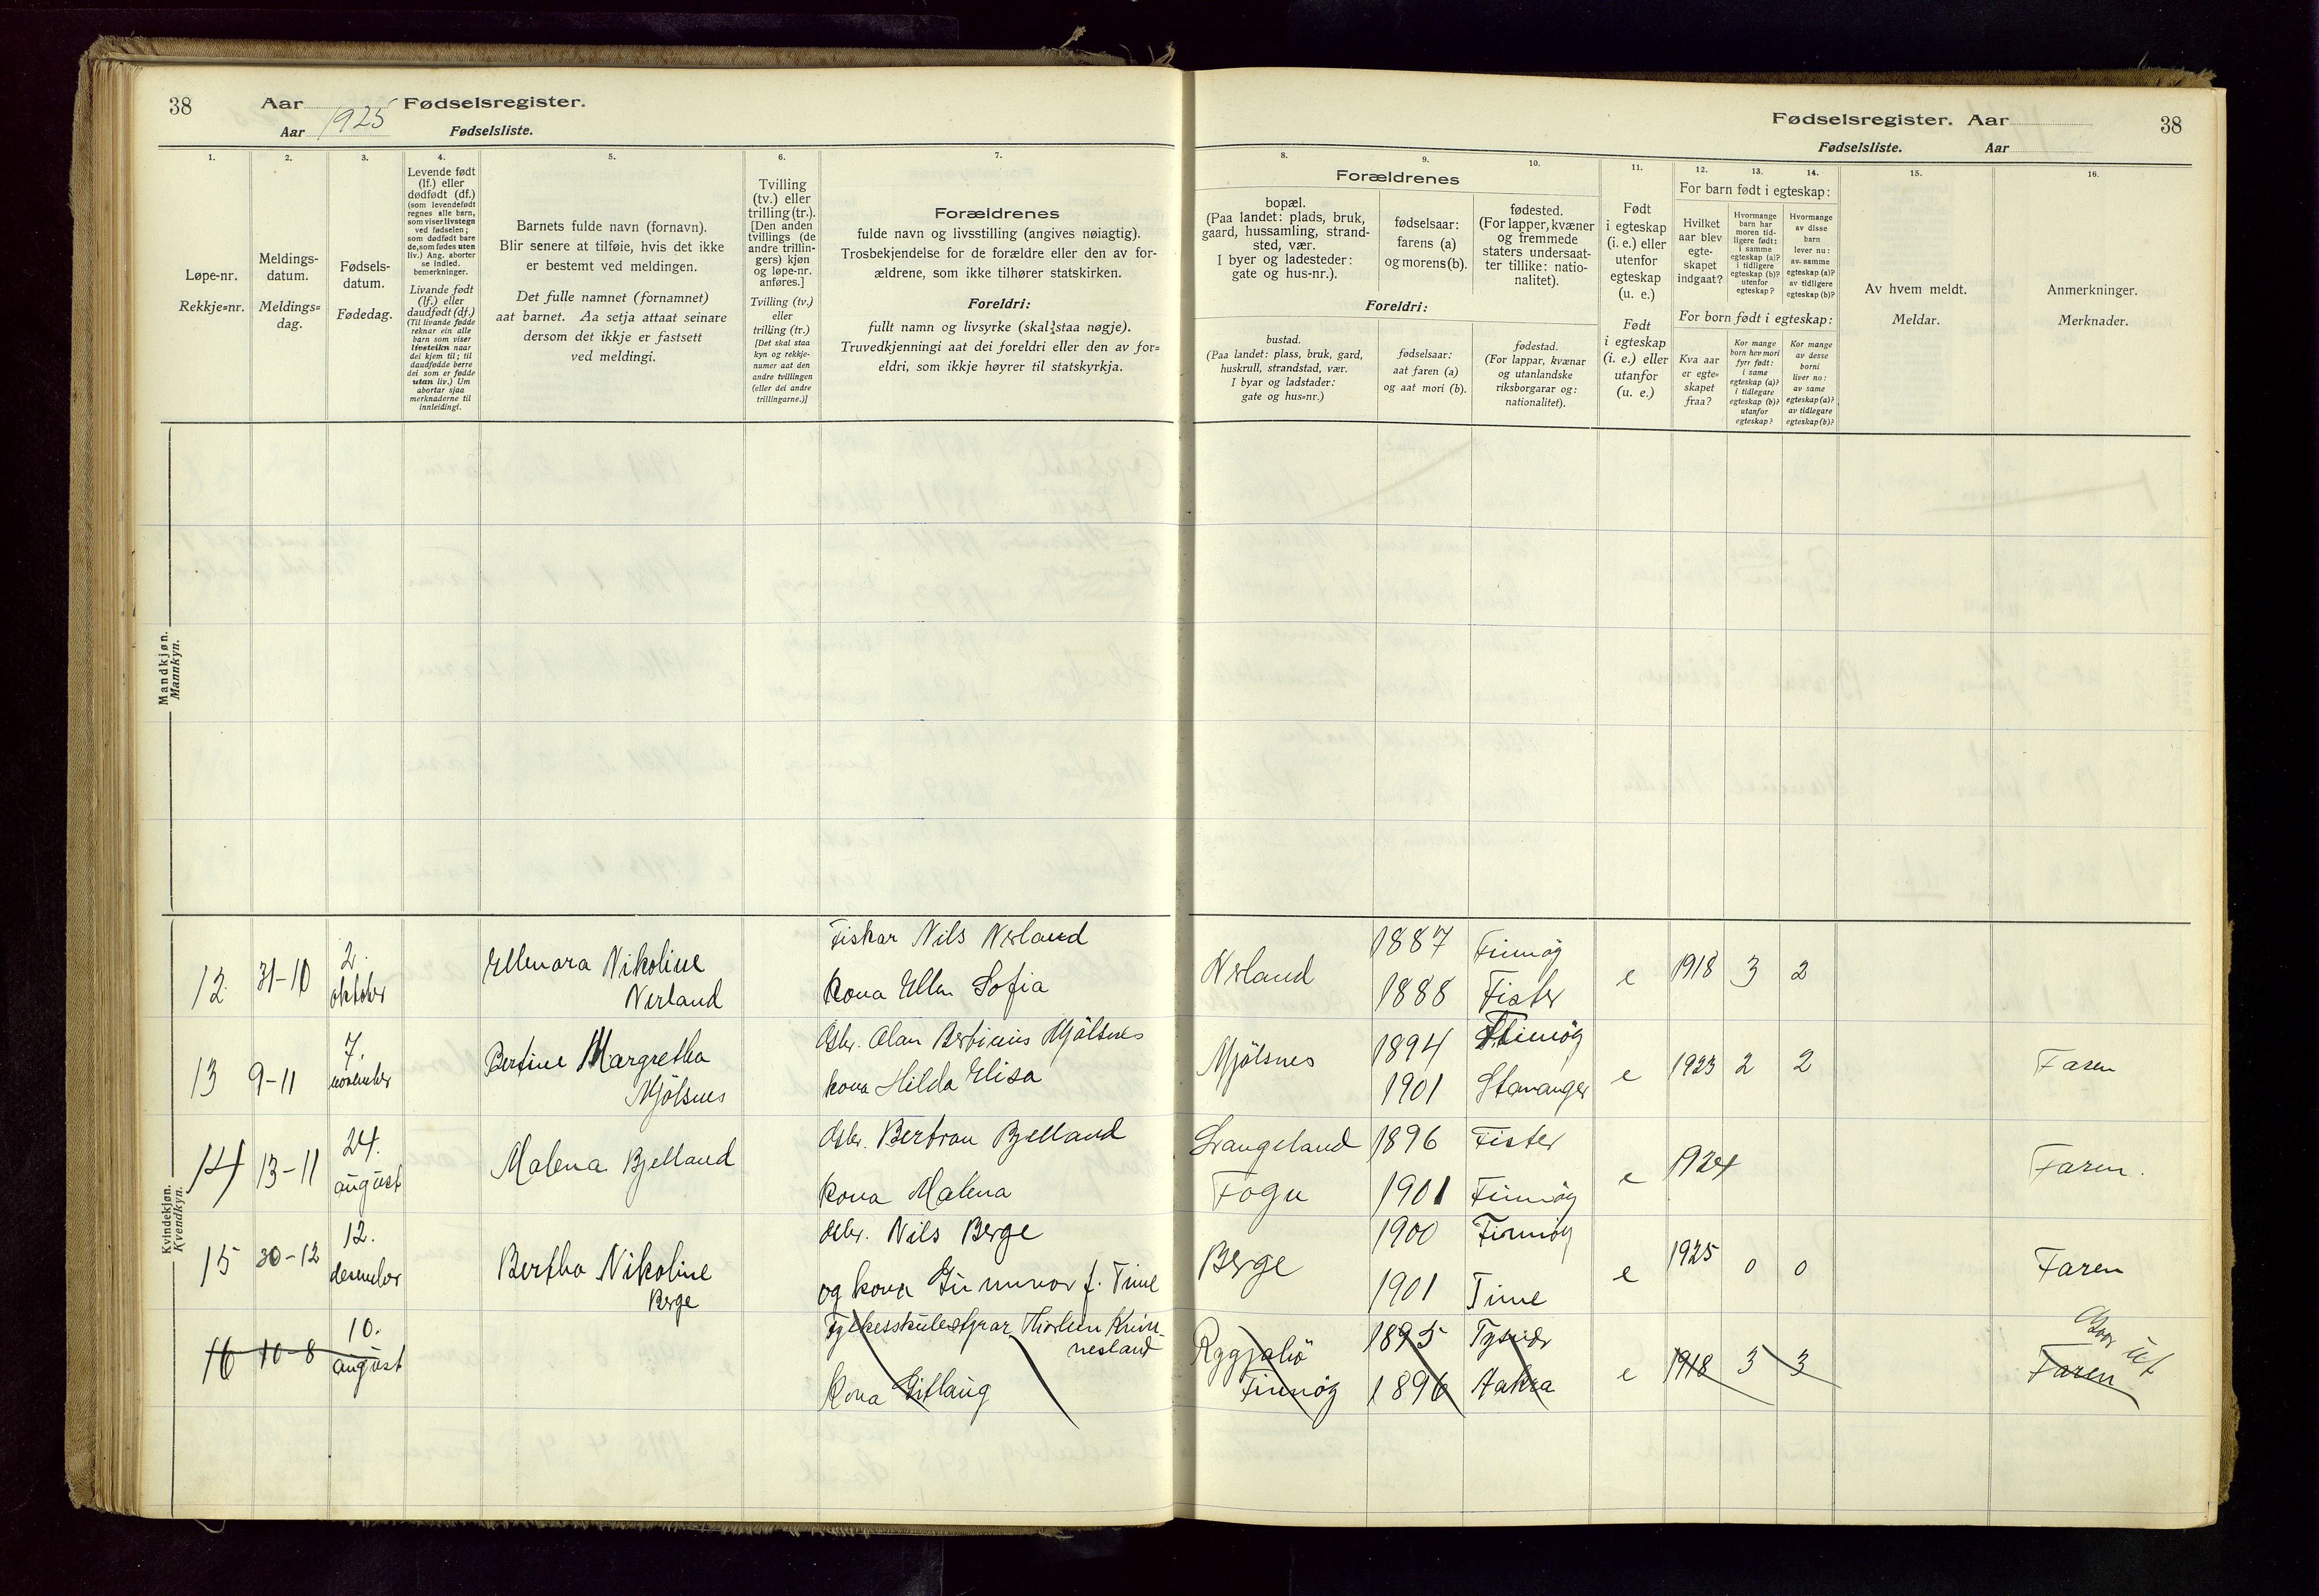 38 Aar 1925 Fødselsregister.
Aar Fødselsliste.
Fødselsregister. Aar 38
Fødselsliste. Aar
1. 2. 3. 4. 5. 6. 7.
Løpe-nr.
Rekkje=nr.
Meldings-
datum.
Meldings=
dag.
Fødsels-
datum.
Fødedag.
Levende født
(lf.) eller
dødfødt (df.)
(som levendefødt
regnes alle barn,
som viser livstegn
ved fødselen;
som dødfødt bare
de, som fødes uten
liv.) Ang. aborter
se indled.
bemerkninger.
Livande født
(lf.) eller
daudfødt (df.)
(Til livande fødde
reknar ein alle
barn som viser
livsteikn naar
dei kjem til; til
daudfødde berre
dei som er fødde
utan liv.) Um
abortar sjaa
merknaderne til
innleidingi.
Barnets fulde navn (fornavn).
Blir senere at tilføie, hvis det ikke
er bestemt ved meldingen.
Det fulle namnet (fornamnet)
aat barnet. Aa setja attaat seinare
dersom det ikkje er fastsett
ved meldingi.
Tvilling
(tv.) eller
trilling (tr.).
[Den anden
tvillings (de
andre trillin-
gers) kjøn
og løpe-nr.
anføres.]
Tvilling (tv.)
eller
trilling (tr.)
[Det skal staa
kyn og rekkje-
numer aat den
andre tvillingen
(eller dei andre
trillingarne.)]
Forældrenes
fulde navn og livsstilling (angives nøiagtig).
Trosbekjendelse for de forældre eller den av for-
ældrene, som ikke tilhører statskirken.
Foreldri:
fullt namn og livsyrke (skal staa nøgje).
Truvedkjenningi aat dei foreldri eller den av for=
eldri, som ikkje høyrer til statskyrkja.
8. 9. 10. 11. 12. 13. 14. 15. 16.
Forældrenes
bopæl.
(Paa landet: plads, bruk,
gaard, hussamling, strand-
sted, vær.
I byer og ladesteder:
gate og hus-nr.).
fødselsaar:
farens (a)
og morens (b).
fødested.
(For lapper, kvæner
og fremmede
staters undersaat-
ter tillike: natio-
nalitet).
Foreldri:
bustad.
(Paa landet: plass, bruk, gard,
huskrull, strandstad, vær.
I byar og ladstader:
gate og hus=nr.)
fødselsaar:
aat faren (a)
og aat mori (b).
fødestad.
(For lappar, kvænar
og utanlandske
riksborgarar og:
nationalitet).
Født
i egteskap
(i. e.) eller
utenfor
egteskap
(u. e.)
Født
i egteskap
(i. e.) eller
utanfor
(u. e.)
For barn født i egteskap:
Hvilket
aar blev
egte-
skapet
indgaat?
Hvormange
barn har
moren tid-
ligere født:
i samme
egteskap (a)?
i tidligere
egteskap (b)?
utenfor
egteskap?
Hvormange
av disse
barn
lever nu:
av samme
egteskap (a)?
av tidligere
egteskap (b)?
For born født i egteskap:
Kva aar
er egte=
skapet
fraa?
Kor mange
born hev mori
fyrr født:
i same
egteskap (a)?
i tidlegare
egteskap (b)?
utanfor
egteskap?
Kor mange
av desse
borni
liver no:
av same
egteskap (a)?
av tidlegare
egteskap (b)?
Av hvem meldt.
Meldar.
Anmerkninger.
Merknader.
Mandkjøn.
Mannkyn.
Kvindekjøn.
Kvendkyn.
12 31-10 2. oktober Ellenora Nikoline
Nerland
Fiskar Nils Nerland
kona Ellen Sofia
Nerland 1887 Finnøy
1888 Fister
e 1918 3 2
13 9-11 7. november Bertine Margretha
Mjölsnes
Gbr. Olan Bertinius Mjölsnes
kona Hilda Elisa
Mjölsnes 1894 Finnöy
1901 Stavanger
e 1923 2 2 Faren
14 13-11 24. august Malena Bjelland
Gbr. Bertran Bjelland
kona Malena
Langeland 1896 Fister
Fogn 1901 Finnöy
e 1924 Faren.
15 30-12 12. desember Bertha Nikoline
Berge
Gbr. Nils Berge
og kona Gunnvor f. Time
Berge 1900 Finnöy
1901 Time
e 1925 0 0 Faren
16 10-8 10. august
Fylkesskulestyrar Thorleiv Kvin-
nesland
kona Gislaug
1895 Tysvær
Finnöy 1896 Aakra
e 1918 3 3 Faren
ut